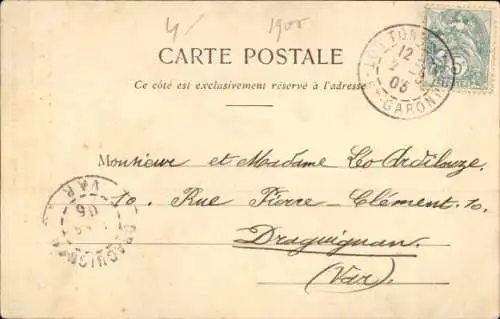 4/ 1905
CARTE POSTALE
Ce côté est exclusivement réservé à l'adresse
12
2
05
GARONNE
Monsieur et Madame Léo Ardilouze.
10. Rue Pierre-Clément. 10.
Draguignan.
(Var)
DRAGUIGNAN
VAR
05